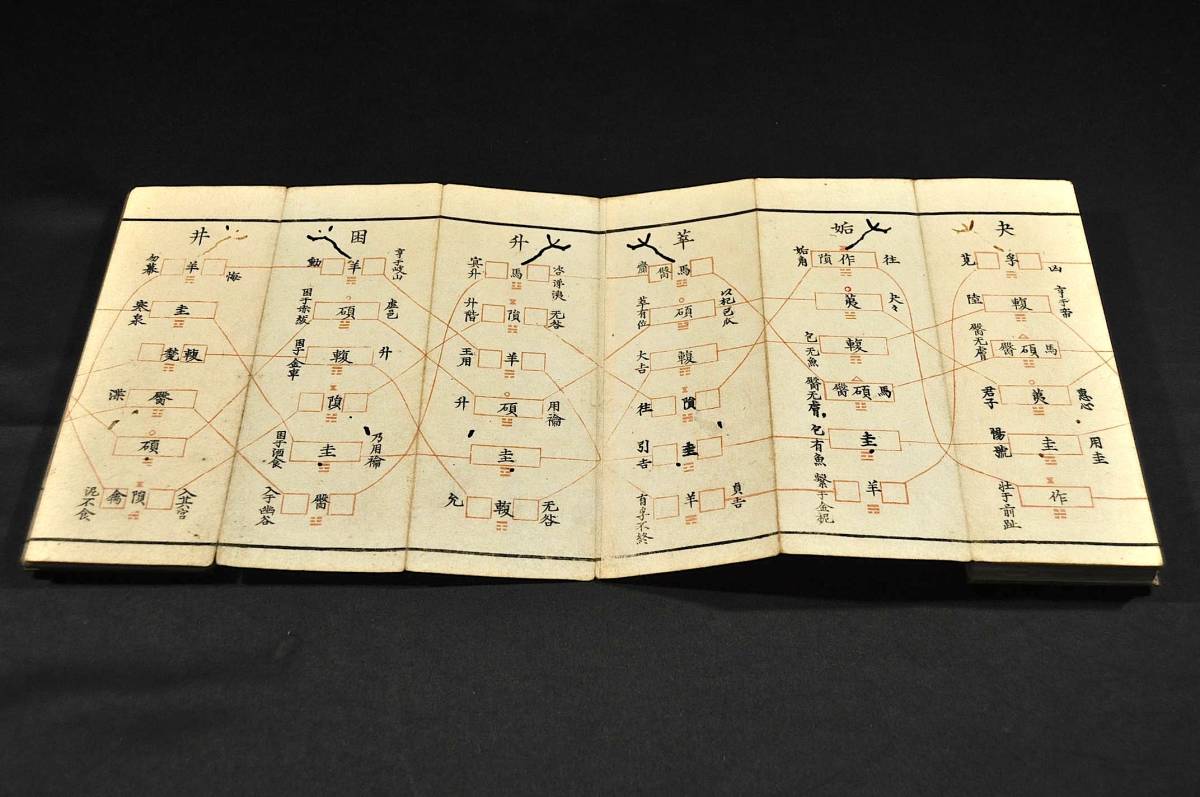 夬
凶
孚
莧
輹
陸
馬
碩
臀
臀无膚
惠心
君子
用圭
圭
作
壯于前趾
姤
往
作
隕
姤角
輹
包无魚
馬
碩
臀
臀无膚
圭
包有魚
羊
繫于金柅
萃
馬
臀
齎
以杞包瓜
碩
萃有位
輹
大吉
隕
往
圭
引吉
貞吉
羊
有孚不終
升
咨涕洟
馬
冥升
无咎
隕
升階
羊
王用
用禴
碩
升
圭
无咎
輹
允
困
亨于岐山
羊
動
虛邑
碩
困于赤紱
升
輹
困于金車
隕
乃用禴
圭
困于酒食
臀
入于幽谷
井
悔
羊
勿幕
圭
寒泉
輹
甃
臀
渫
碩
入其宮
隕
禽
泥不食